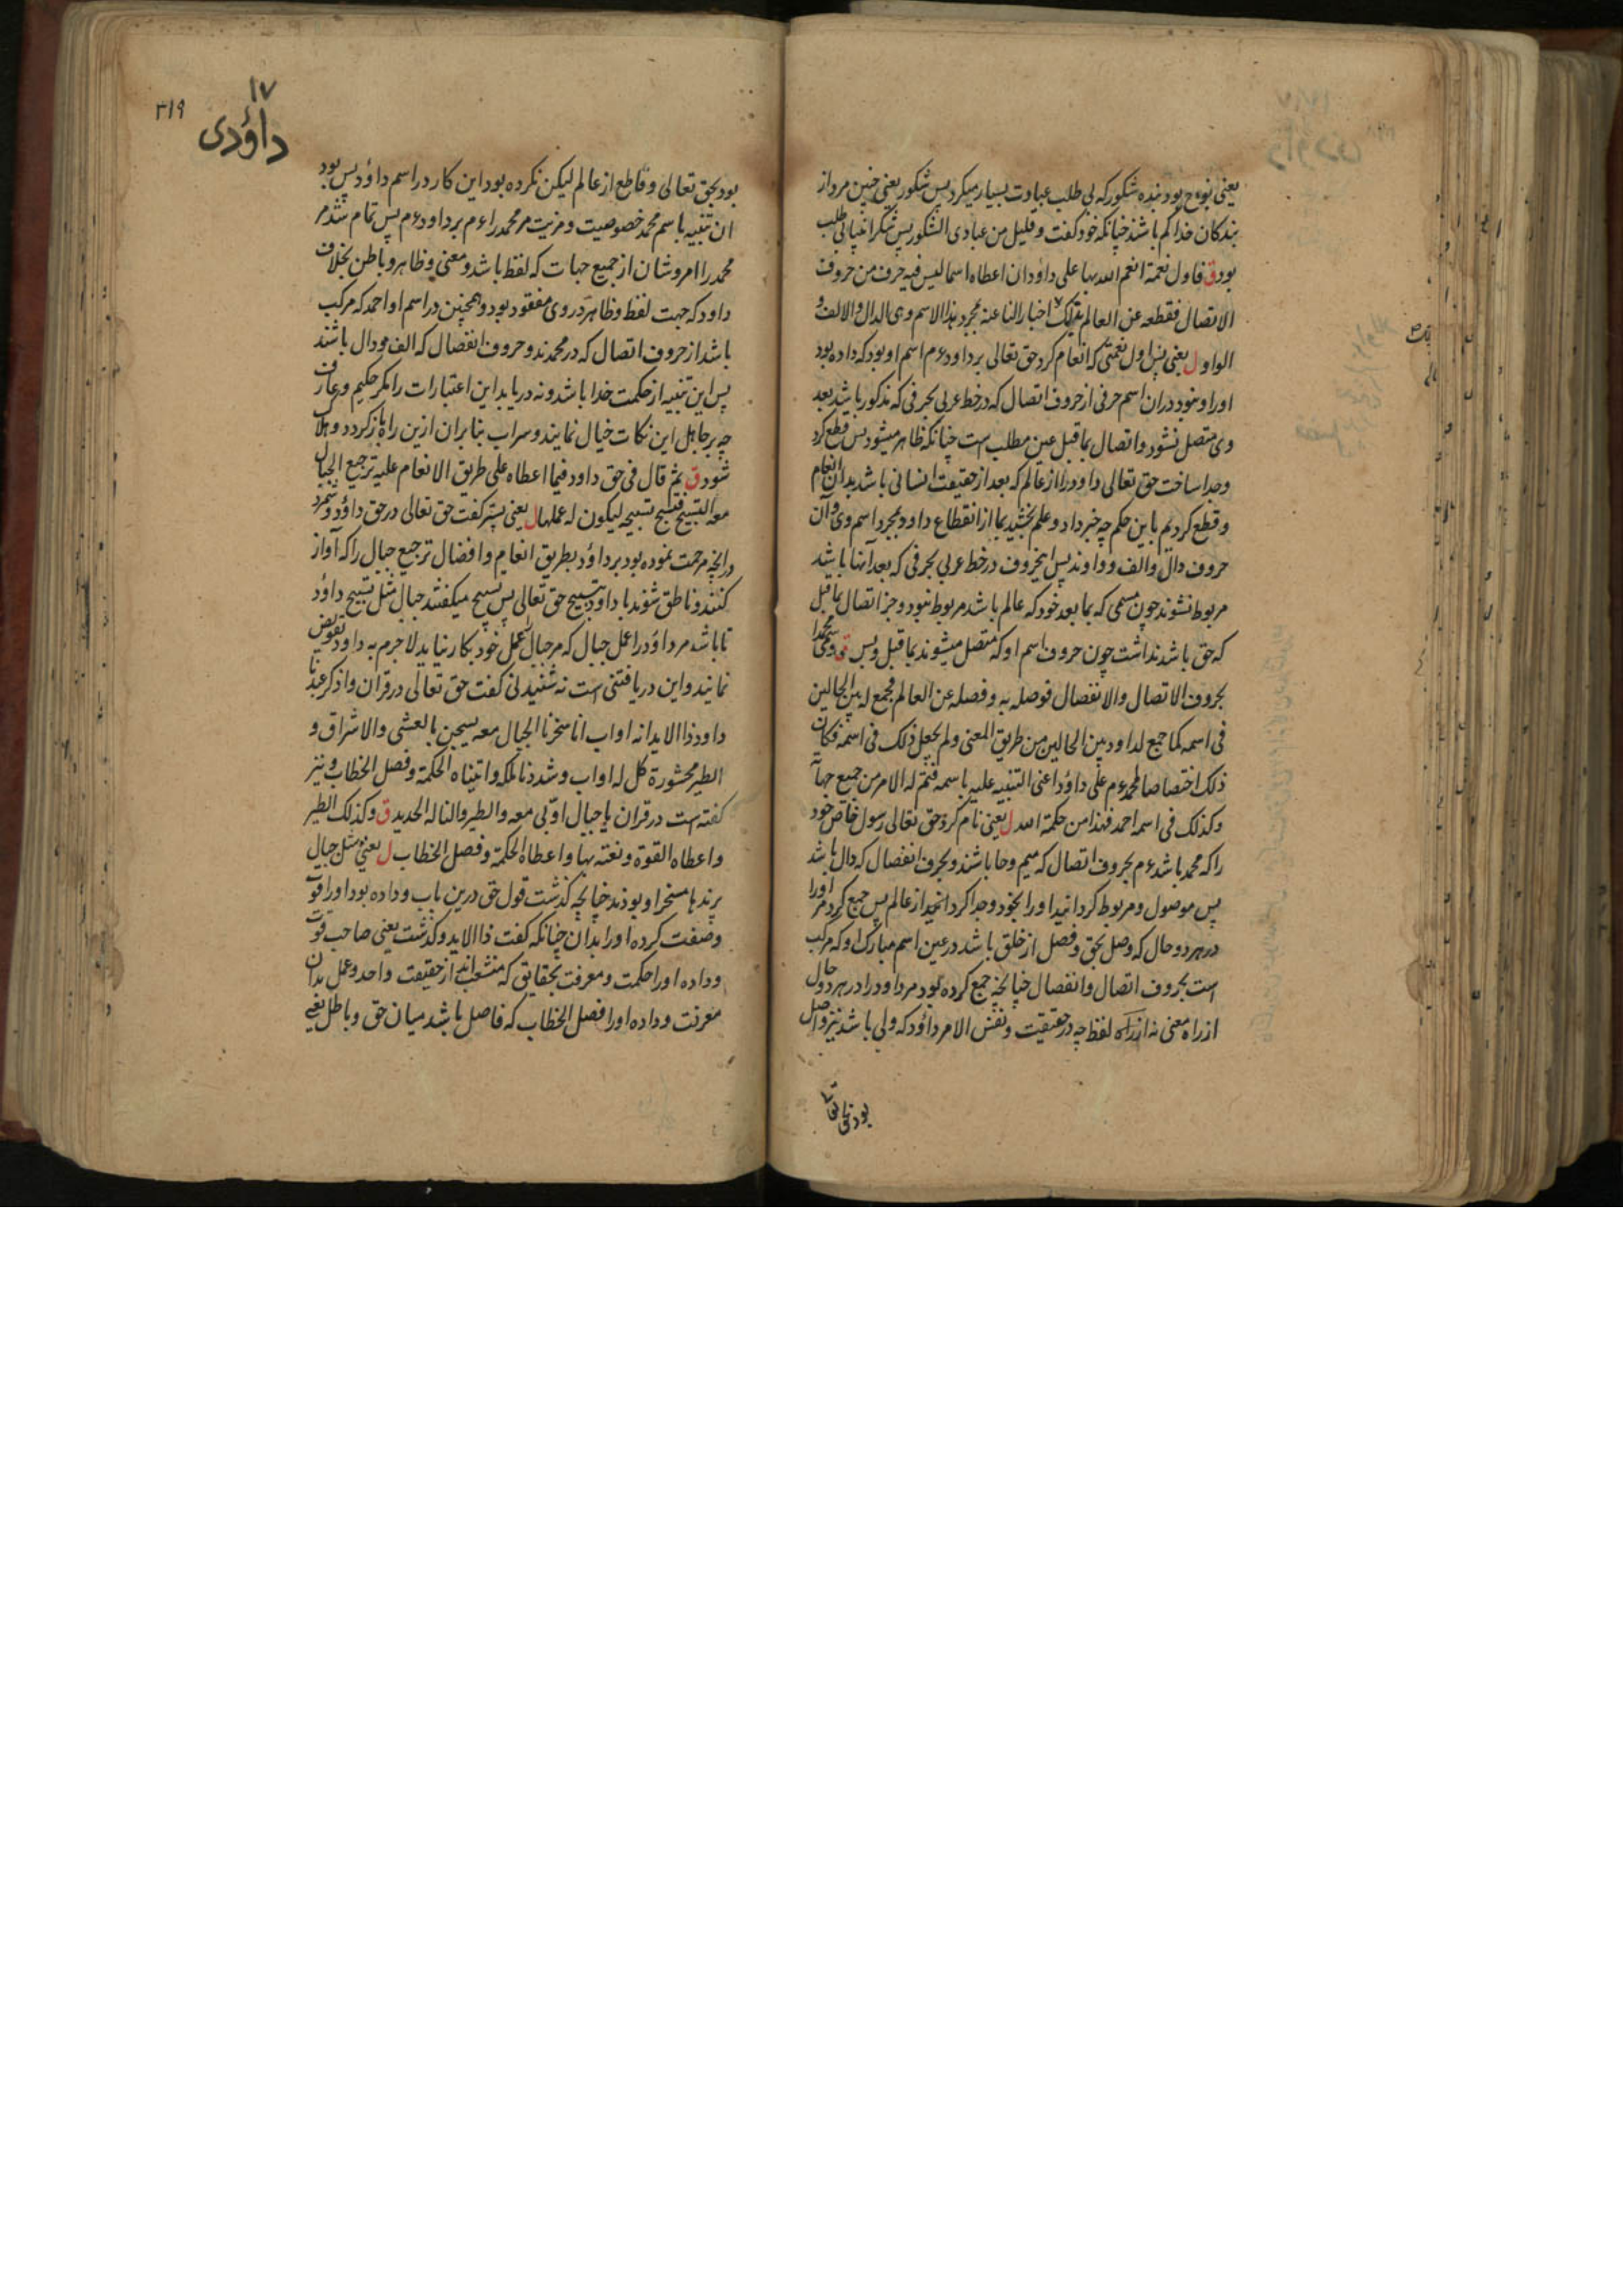 یعنی نوح بود بنده شکور که بی طلب عبادت بسیار میکرد پس شکور یعنی چنین مرد از
بندکان خدا کم باشند چنانکه خود کفت و قلیل من عبادی الشکور پس شکر انبیا بی طلب
بود ق فاول نعمة انعم الله بها علی داؤد ان اعطاه اسما لیس فیه حرف من حروف
الاتصال فقطعه عن العالم بذلک اخبارا لنا عنه بمجرد هذا الاسم وهی الدال والالف و
الواو ل یعنی پس اول نعمتی که انعام کرد حق تعالی بر داود ءم اسم او بود که داده بود
اورا و نبود دران اسم حرفی از حروف اتصال که در خط عربی بحرفی که مذکور باشد بعد
وی متصل نشود و اتصال بما قبل عین مطلب است چنانکه ظاهر میشود پس قطع کرد
وجدا ساخت حق تعالی داود را از عالم که بعد از حقیقت انسانی باشد بدان انعام
و قطع کردیم باین حکم چه خبر داد و علم بخشید بما از انقطاع داود بمجرد اسم وی و آن
حروف دال و الف و واوند پس اینحروف در خط عربی بحرفی که بعد آنها باشد
مربوط نشوند چون مسمی که بما بعد خود که عالم باشد مربوط نبود و جز اتصال بما قبل
که حق باشد نداشت چون حروف اسم او که متصل میشوند بما قبل و بس ق وسمی محمدا
بحروف الاتصال والانفصال فوصله به وفصله عن العالم فجمع له بین الحالین
فی اسمه کما جمع لداود بین الحالین من طریق المعنی ولم یجعل ذلک فی اسمه فکان
ذلک اختصاصا لمحمد ءم علی داؤد اعنی التنبیه علیه باسمه فتم له الامر من جمیع جهاته
وکذلک فی اسمه احمد فهذا من حکمة الله ل یعنی نام کرد حق تعالی رسول خاص خود
را که محمد باشد ءم بحروف اتصال که میم و حا باشند و بحرف انفصال که دال باشد
پس موصول و مربوط کردانید اورا بخود وجدا کردانید از عالم پس جمع کرد مر اورا
در هر دو حال که وصل بحق و فصل از خلق باشد در عین اسم مبارک او که مرکب
است بحروف اتصال و انفصال چنانچه جمع کرده بود مر داود را در هر دو حال
از راه معنی نه از راه لفظ چه در حقیقت و نفس الامر داؤد که ولی باشد نیز واصل
بود بحق تعا
١٧
داؤدی
٣١٩
بود بحق تعالی و قاطع از عالم لیکن نکرده بود این کار در اسم داؤد پس بود
ان تنبیه باسم محمد خصوصیت و مزیت مر محمد را ءم بر داود ءم پس تمام شد مر
محمد را امر و شان از جمیع جهات که لفظ باشد و معنی و ظاهر و باطن بخلاف
داود که جهت لفظ و ظاهر در وی مفقود بود و همچنین در اسم او احمد که مرکب
باشد از حروف اتصال که در محمدند و حروف انفصال که الف و دال باشند
پس این تنبیه از حکمت خدا باشد و نه دریابد این اعتبارات را مکر حکیم و عارف
چه بر جاهل این نکات خیال نمایند و سراب بنابران ازین راه باز کردد و هلاک
شود ق ثم قال فی حق داود فیما اعطاه علی طریق الانعام علیه ترجیع الجبال
معه التسبیح فتسبح تسبیحه لیکون له عملها ل یعنی پستر کفت حق تعالی در حق داؤد و شمرد
درانچه مرحمت نموده بود بر داؤد بطریق انعام و افضال ترجیع جبال را که آواز
کنند و ناطق شوند با داود بتسبیح حق تعالی پس تسبیح میکفتند جبال مثل تسبیح داؤد
تا باشد مر داؤد را عمل جبال که مر جبال را عمل خود بکار نیاید لا جرم به داود تفویض
نمایند و این دریافتنی است نه شنیدنی کفت حق تعالی در قران واذکر عبدنا
داود ذا الاید انه اواب انا سخرنا الجبال معه یسبحن بالعشی والاشراق و
الطیر محشورة کل له اواب وشددنا ملکه واتیناه الحکمة وفصل الخطاب و نیز
کفته است در قران یا جبال اوّبی معه والطیر والنا له الحدید ق وکذلک الطیر
واعطاه القوة ونعته بها واعطاه الحکمة وفصل الخطاب ل یعنی مثل جبال
پرندها مسخر او بودند چنانچه کذشت قول حق درین باب و داده بود اورا قوت
وصفت کرده اورا بدان چنانکه کفت ذا الاید و کذشت یعنی صاحب قوت
و داده اورا حکمت و معرفت بحقایق که منشعب اند از حقیقت واحد و عمل بدان
معرفت و داده اورا فصل الخطاب که فاصل باشد میان حق و باطل یعنی